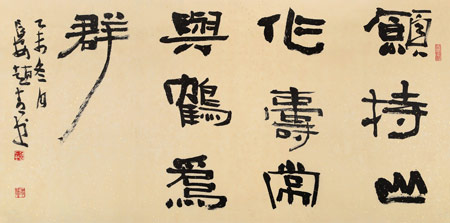 願持山
作壽常
與鶴爲
群
乙未冬月